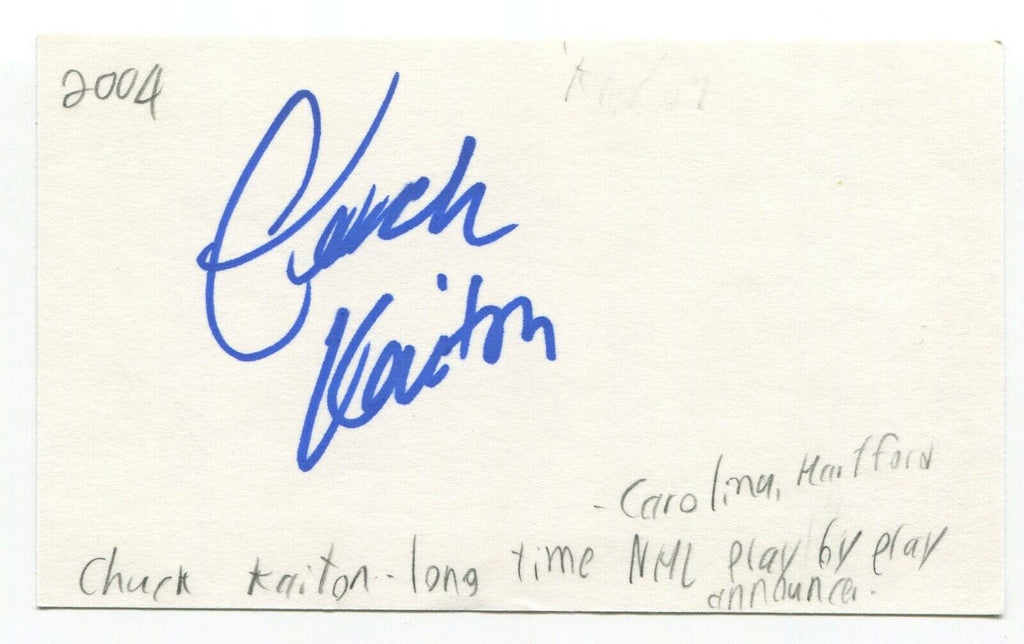 2004
Chuck
Kaiton
- Carolina, Hartford
Chuck Kaiton - long time NHL play by play
announcer.